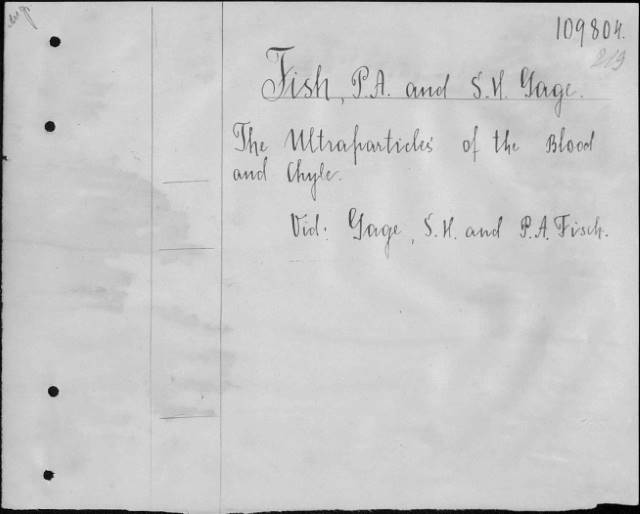 109804.
213
Fish, P.A. and S.H. Gage.
The Ultraparticles of the Blood
and Chyle.
Vid: Gage, S.H. and P.A. Fisch.